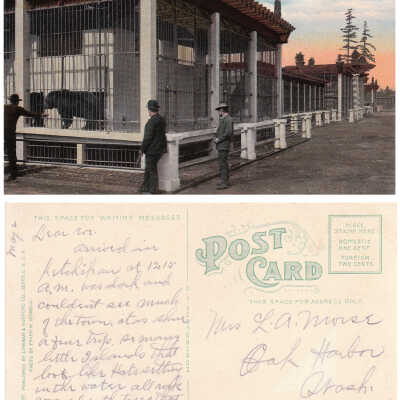 THIS SPACE FOR WRITING MESSAGES
May 2
Dear
arrived in
Ketchikan at 12:15
A.M. was dark and
couldn't see much
of the town,
a fine trip, so many
little Islands that
look like Hats sitting
in the water all rock
POST
CARD
THIS SPACE FOR ADDRESS ONLY
PLACE
STAMP HERE
DOMESTIC
ONE CENT
FOREIGN
TWO CENTS
Mrs L. A. Morse
Oak Harbor
Wash.